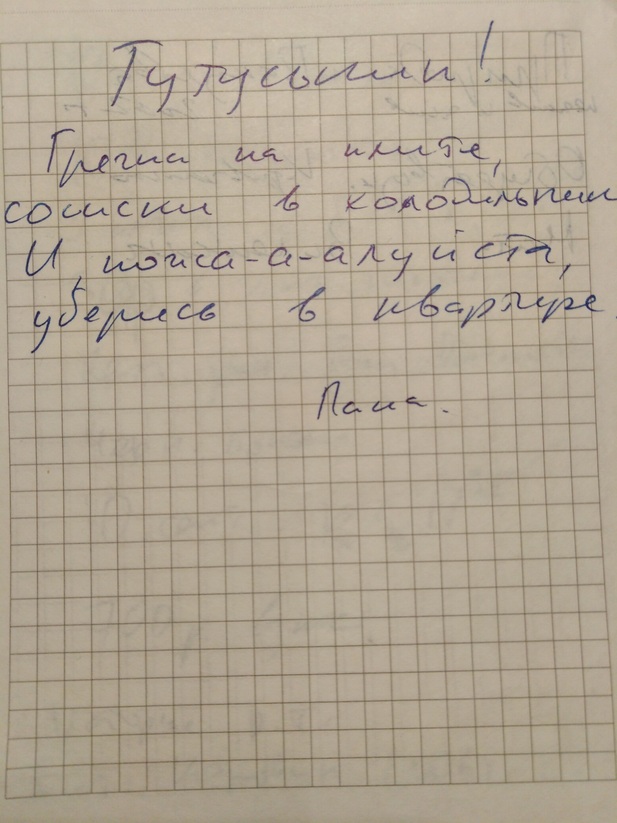 Гутуськин!
Гречка на плите,
сосиски в холодильнике
И, пожа-а-алуйста,
уберись в квартире.
Папа.